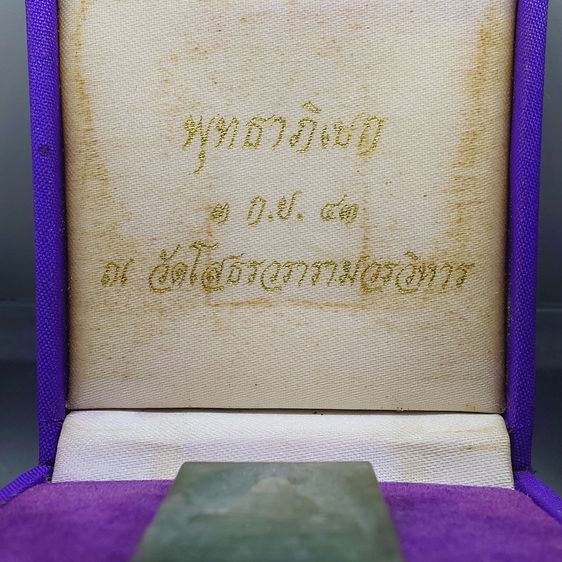 พุทธาภิเษก
๓ ก.ย. ๔๓
ณ วัดโสธรวรารามวรวิหาร